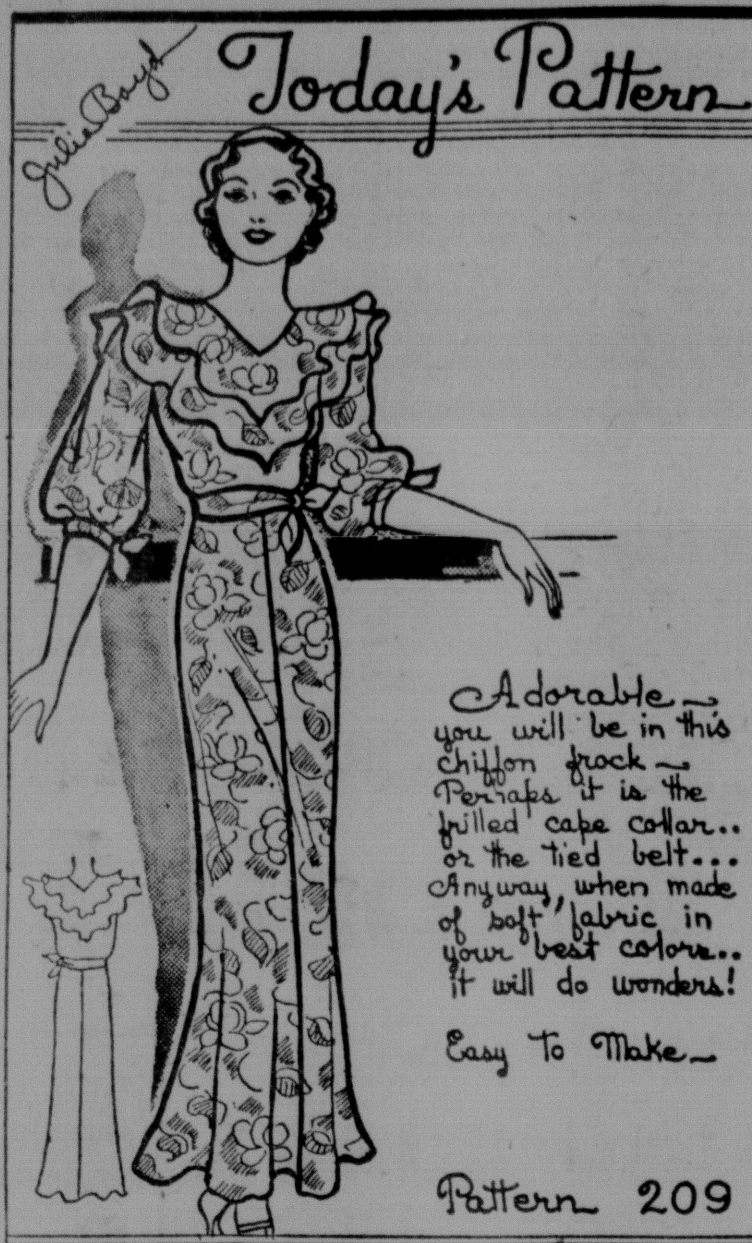 Julia Boyd
Today's Pattern
Adorable~
you will be in this
chiffon frock~
Perhaps it is the
frilled cape collar..
or the tied belt...
Anyway, when made
of soft fabric in
your best colors..
it will do wonders!
Easy To Make~
Pattern 209